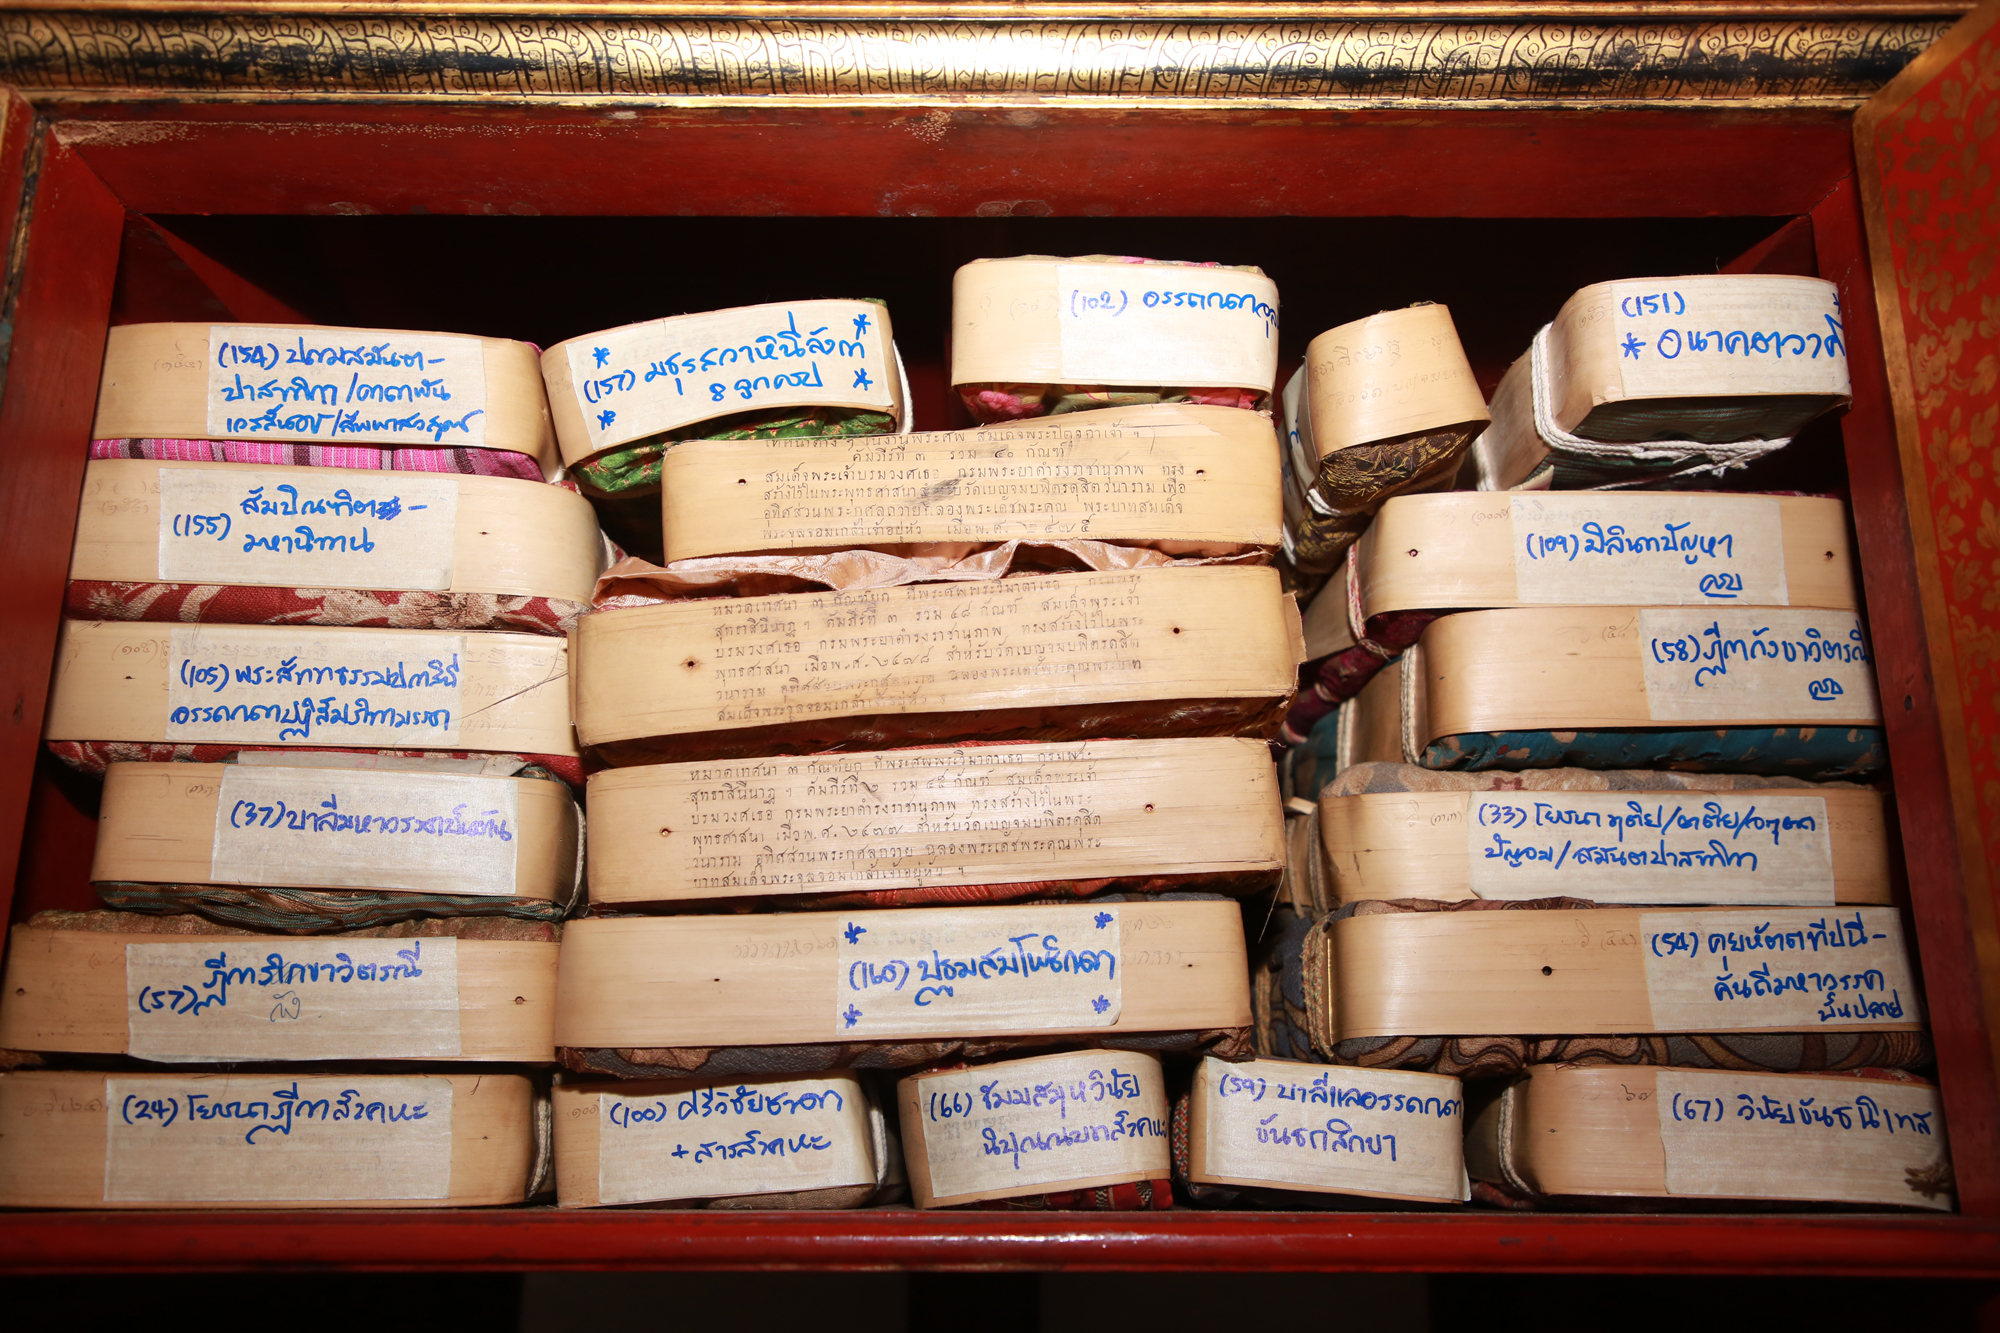 (154) ปฐมสมันตา-
ปาสาทิกา/คาถาพัน
(157) มธุรสวาหินีลังกา
8 ลูกครบ
(102) อรรถกถา
(151)
* อนาคตวงศ์
(155) สัมปิณฑิต-
มหานิทาน
เทศนาต่าง ๆ ในงานพระศพ สมเด็จพระปิตุจฉาเจ้า ฯ
คัมภีร์ที่ ๓ รวม ๔๐ กัณฑ์
สมเด็จพระเจ้าบรมวงศเธอ กรมพระยาดำรงราชานุภาพ ทรง
สร้างไว้ในพระพุทธศาสนา สำหรับวัดเบญจมบพิตรดุสิตวนาราม เพื่อ
อุทิศส่วนพระกุศลถวายฉลองพระเดชพระคุณ พระบาทสมเด็จ
พระจุลจอมเกล้าเจ้าอยู่หัว เมื่อ พ.ศ. ๒๔๗๕
(109) มิลินทปัญหา
ครบ
(58) ฎีกากังขาวิตรณี
ครบ
(105) พระสัททธรรมปกาสินี
อรรถกถาปฏิสัมภิทามรรค
หมวดเทศนา ๓ กัณฑ์ยก ที่พระศพพระวิมาดาเธอ กรมพระ
สุทธาสินีนาฏ ฯ คัมภีร์ที่ ๓ รวม ๔๘ กัณฑ์ สมเด็จพระเจ้า
บรมวงศเธอ กรมพระยาดำรงราชานุภาพ ทรงสร้างไว้ในพระ
พุทธศาสนา เมื่อ พ.ศ. ๒๔๗๘ สำหรับวัดเบญจมบพิตรดุสิต
วนาราม อุทิศส่วนพระกุศลถวาย ฉลองพระเดชพระคุณพระบาท
สมเด็จพระจุลจอมเกล้าเจ้าอยู่หัว ฯ
หมวดเทศนา ๓ กัณฑ์ยก ที่พระศพพระวิมาดาเธอ กรมพระ
สุทธาสินีนาฏ ฯ คัมภีร์ที่ ๒ รวม ๔๕ กัณฑ์ สมเด็จพระเจ้า
บรมวงศเธอ กรมพระยาดำรงราชานุภาพ ทรงสร้างไว้ในพระ
พุทธศาสนา เมื่อ พ.ศ. ๒๔๗๗ สำหรับวัดเบญจมบพิตรดุสิต
วนาราม อุทิศส่วนพระกุศลถวาย ฉลองพระเดชพระคุณพระ
บาทสมเด็จพระจุลจอมเกล้าเจ้าอยู่หัว ฯ
(37) บาลีมหาวรรค
(33) โยชนา ทุติย/ตติย/จตุตถ
ปัญจม/สมันตปาสาทิกา
(57) ฎีกากังขาวิตรณี
กัง
(160) ปฐมสมโพธิกถา
(54) คุยหัตถทีปนี-
คัมภีร์มหาวรรค
ขั้นปลาย
(24) โยชนาฎีกาสังคหะ
(100) ศรีวิชัยชาดก
+ สารสังคหะ
(66)
(59) บาลีและอรรถกถา
ขันธกสิกขา
(67) วินัยขันธนิเทส